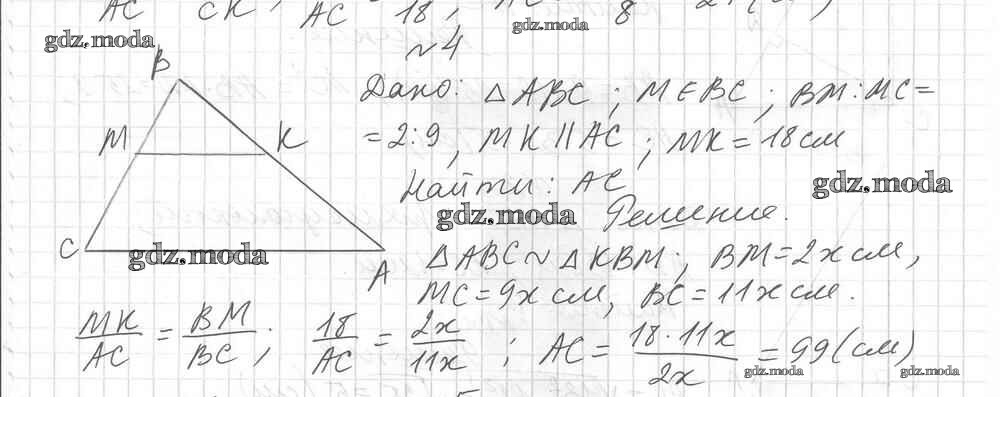 AC CK AC 18, 8
gdz.moda
gdz.moda
№4
B
Дано: △ABC; M∈BC; BM:MC=
M K
=2:9, MK||AC; MK=18см
Найти: AC
gdz.moda
gdz.moda
Решение.
C
gdz.moda
A
△ABC~△KBM; BM=2x см,
MC=9x см, BC=11x см.
MK/AC = BM/BC; 18/AC = 2x/11x; AC = 18·11x/2x = 99(см)
gdz.moda
gdz.moda